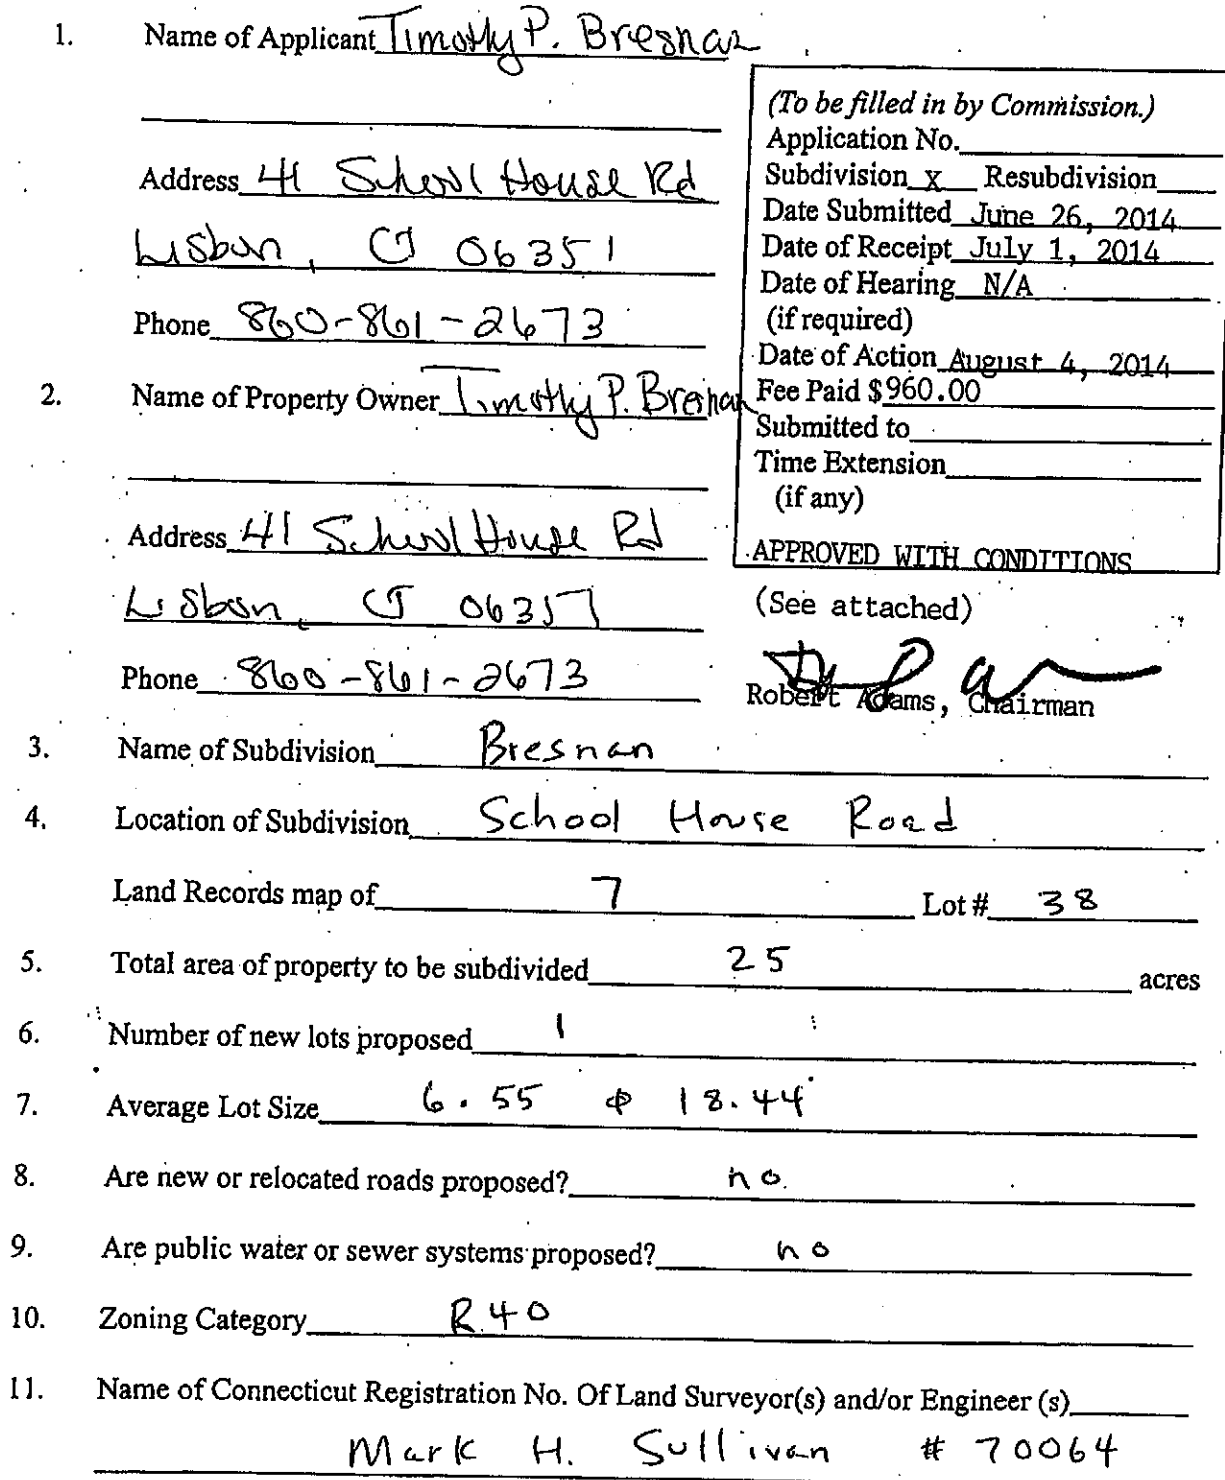 1. Name of Applicant Timothy P. Bresnan
Address 41 School House Rd
Lisbon, CT 06351
Phone 860-861-2673
2. Name of Property Owner Timothy P. Bresnan
Address 41 School House Rd
Lisbon, CT 06351
Phone 860-861-2673
(To be filled in by Commission.)
Application No.
Subdivision x Resubdivision
Date Submitted June 26, 2014
Date of Receipt July 1, 2014
Date of Hearing N/A
(if required)
Date of Action August 4, 2014
Fee Paid $960.00
Submitted to
Time Extension
(if any)
APPROVED WITH CONDITIONS
(See attached)
Robert Adams, Chairman
3. Name of Subdivision Bresnan
4. Location of Subdivision School House Road
Land Records map of 7 Lot # 38
5. Total area of property to be subdivided 25 acres
6. Number of new lots proposed 1
7. Average Lot Size 6.55 & 18.44
8. Are new or relocated roads proposed? no.
9. Are public water or sewer systems proposed? no
10. Zoning Category R40
11. Name of Connecticut Registration No. Of Land Surveyor(s) and/or Engineer (s)
Mark H. Sullivan # 70064